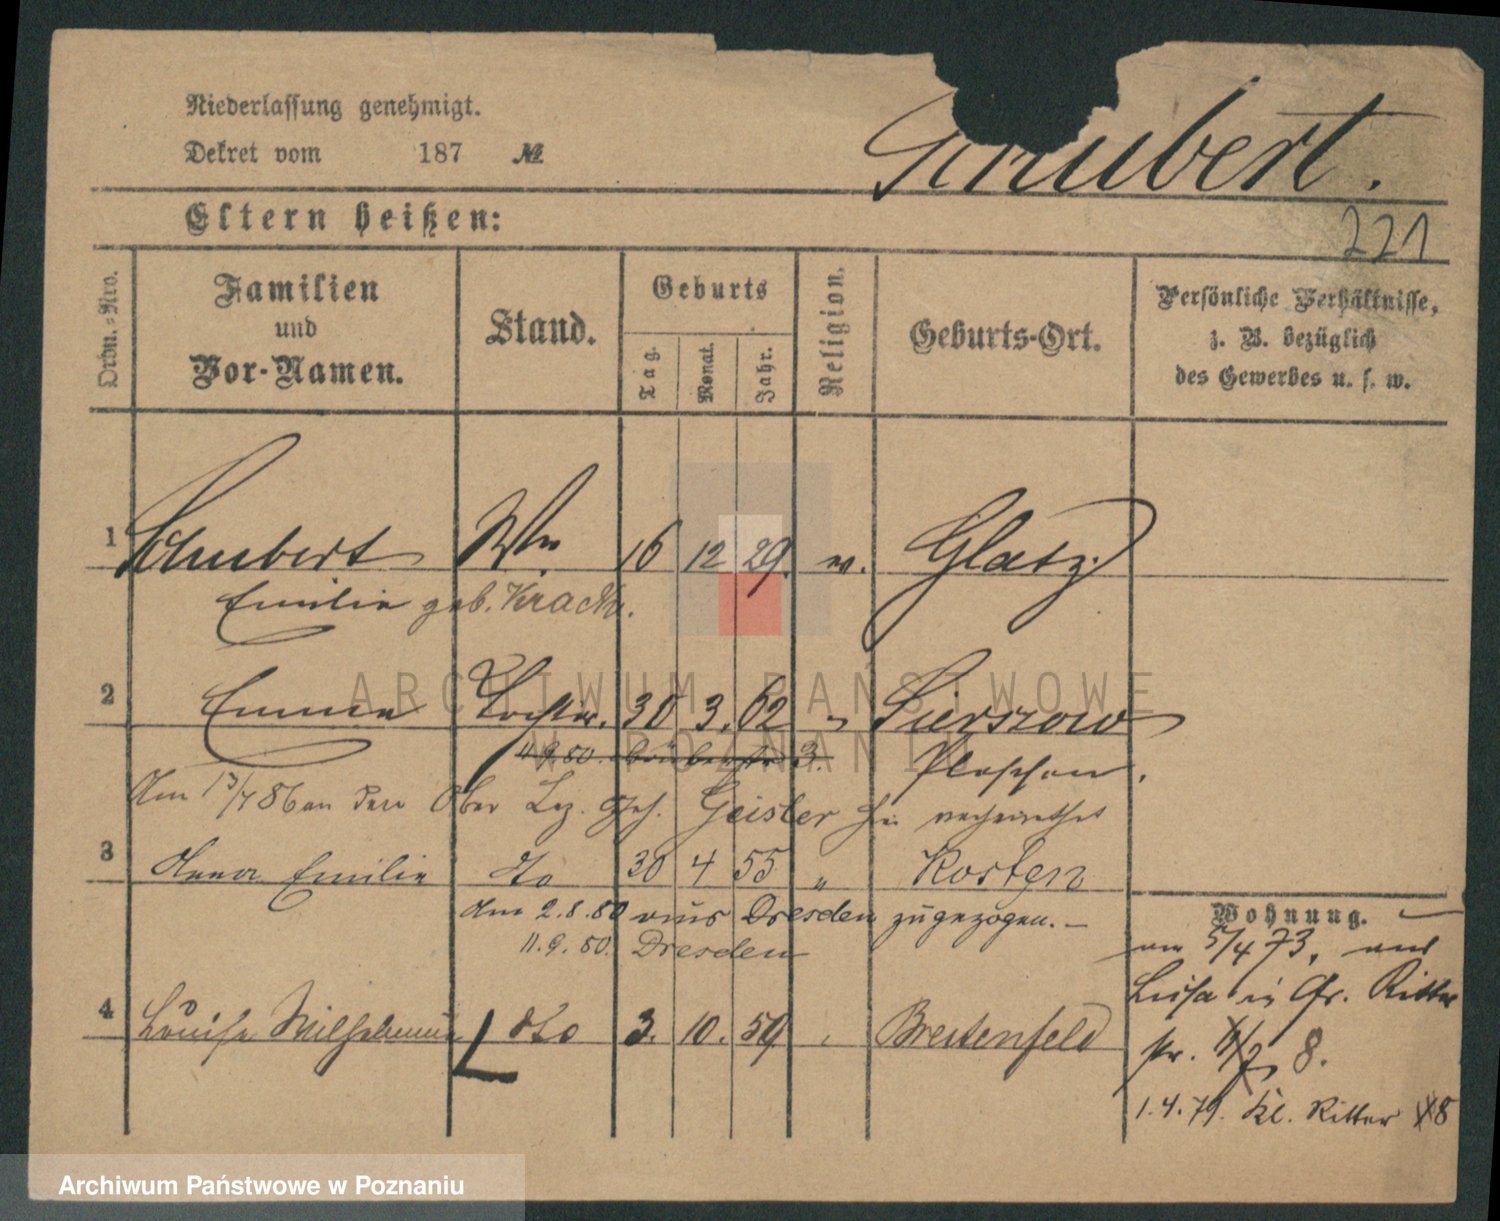 Niederlassung genehmigt.
Dekret vom 187 №
Schubert.
221
Eltern heißen:
Ordn.-Nro.
Familien
und
Vor-Namen.
Stand.
Geburts
Tag.
Monat.
Jahr.
Religion.
Geburts-Ort.
Persönliche Verhältnisse,
z. B. bezüglich
des Gewerbes u. s. w.
1 Schubert Ww. 16 12 29. ev. Glatz.
Emilie geb.
2 Emma Tochter. 30 3. 62 " Sierszow
11.9.80. 3. Pleschen.
Am 13/7 86 an Ober Geisler verheirathet
3 Anna Emilie dto 30 4 55 " Kosten
Am 2.8.80 aus Dresden zugezogen. —
11.9.80. Dresden
4 Louise Wilhelmine dto 3. 10. 59 Breitenfeld
Wohnung.
am 5/4 73, aus
Lissa in Gr. Ritter
str. 8.
1.4.79. Kl. Ritter 8
ARCHIWUM PAŃSTWOWE
W POZNANIU
Archiwum Państwowe w Poznaniu